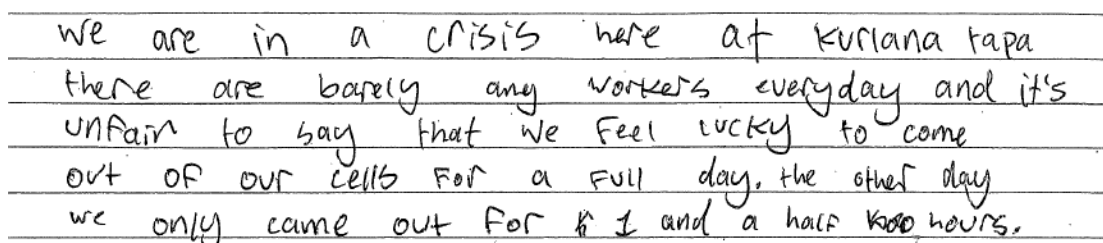 we are in a crisis here at kurlana tapa
there are barely any workers everyday and it's
unfair to say that we feel lucky to come
out of our cells for a full day. the other day
we only came out for 1 and a half hours.